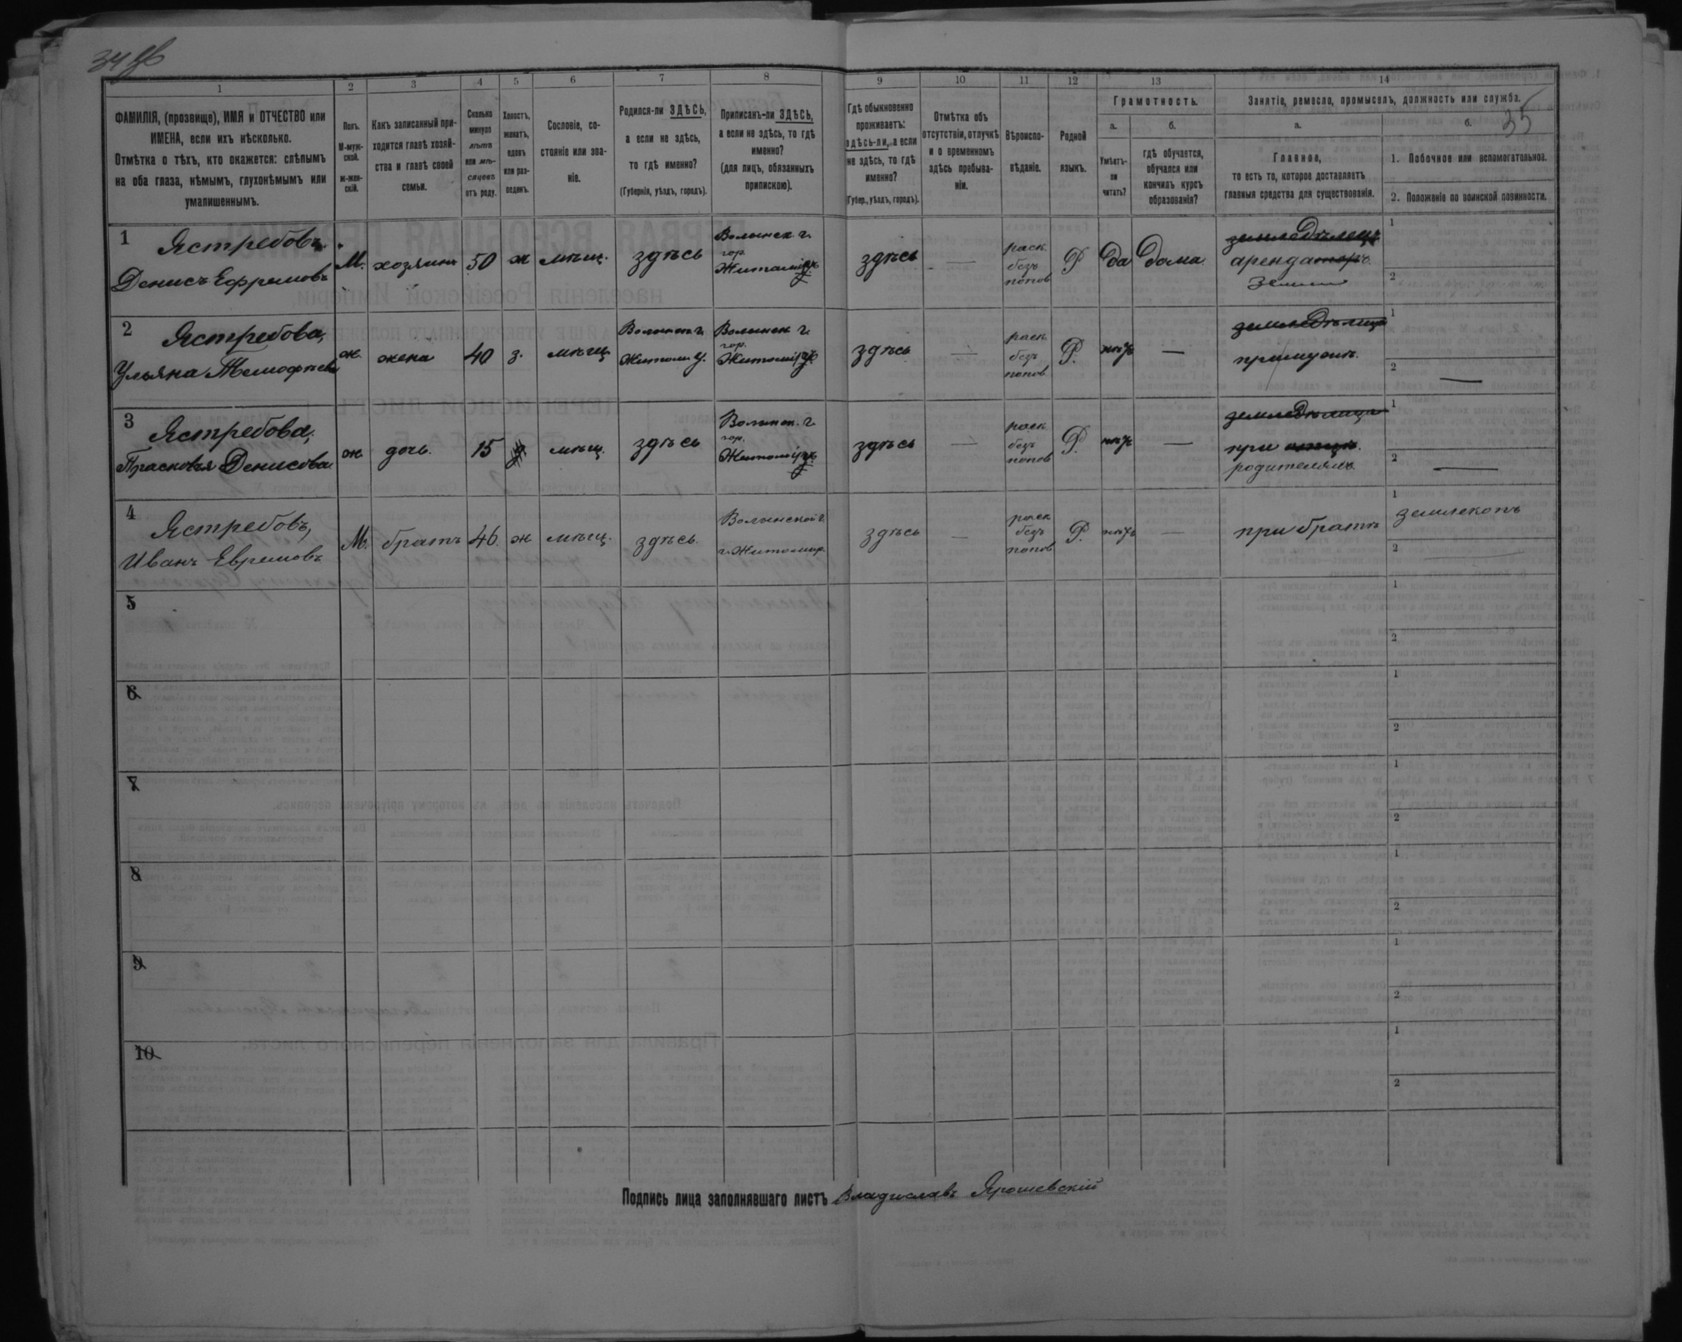 34 об
35
1
2
3
4
5
6
7
8
9
10
11
12
13
14
ФАМИЛІЯ, (прозвище), ИМЯ и ОТЧЕСТВО или
ИМЕНА, если ихъ нѣсколько.
Отмѣтка о тѣхъ, кто окажется: слѣпымъ
на оба глаза, нѣмымъ, глухонѣмымъ или
умалишеннымъ.
Полъ.
М-муж-
ской.
ж-жен-
скій.
Какъ записанный при-
ходится главѣ хозяй-
ства и главѣ своей
семьи.
Сколько
минуло
лѣтъ
или мѣ-
сяцевъ
отъ роду.
Холостъ,
женатъ,
вдовъ
или раз-
веденъ.
Сословіе, со-
стояніе или зва-
ніе.
Родился-ли ЗДѢСЬ,
а если не здѣсь,
то гдѣ именно?
(Губернія, уѣздъ, городъ).
Приписанъ-ли ЗДѢСЬ,
а если не здѣсь, то гдѣ
именно?
(для лицъ, обязанныхъ
припискою).
Гдѣ обыкновенно
проживаетъ:
здѣсь-ли, а если
не здѣсь, то гдѣ
именно?
(Губер., уѣздъ, городъ).
Отмѣтка объ
отсутствіи, отлучкѣ
и о временномъ
здѣсь пребыва-
ніи.
Вѣроиспо-
вѣданіе.
Родной
языкъ.
Грамотность.
а.
Умѣетъ-
ли
читать?
б.
гдѣ обучается,
обучался или
кончилъ курсъ
образованія?
Занятіе, ремесло, промыселъ, должность или служба.
а.
Главное,
то есть то, которое доставляетъ
главныя средства для существованія.
б.
1. Побочное или вспомогательное.
2. Положеніе по воинской повинности.
1 Ястребовъ
Денисъ Ефремовъ
М. хозяинъ 50 ж мѣщ. здѣсь
Волынск г.
гор.
Житоміръ
здѣсь —
раск.
безъ
попов
Р да дома
земледѣлецъ
арендаторъ
земли
1
2
2 Ястребова,
Ульяна Тимофѣева
ж. жена 40 з. мѣщ.
Волынск г.
Житом. у.
Волынск г.
гор.
Житоміръ
здѣсь —
раск
безъ
попов
Р. нѣтъ —
земледѣлица
при мужѣ.
1
2 —
3 Ястребова,
Прасковья Денисова.
ж дочь. 15 мѣщ. здѣсь
Волынск. г.
гор.
Житоміръ
здѣсь —
раск
безъ
попов
Р. нѣтъ —
земледѣлица
при
родителяхъ
1
2 —
4 Ястребовъ,
Иванъ Евремовъ
М. братъ 46 ж мѣщ. здѣсь
Волынской г.
г. Житомир.
здѣсь —
раск
безъ
попов
Р. нѣтъ —
при братѣ
1
землекопъ
2
5
1
2
6
1
2
7
1
2
8
1
2
9
1
2
10
1
2
Подпись лица заполнявшаго листъ Владиславъ Ярошевскій